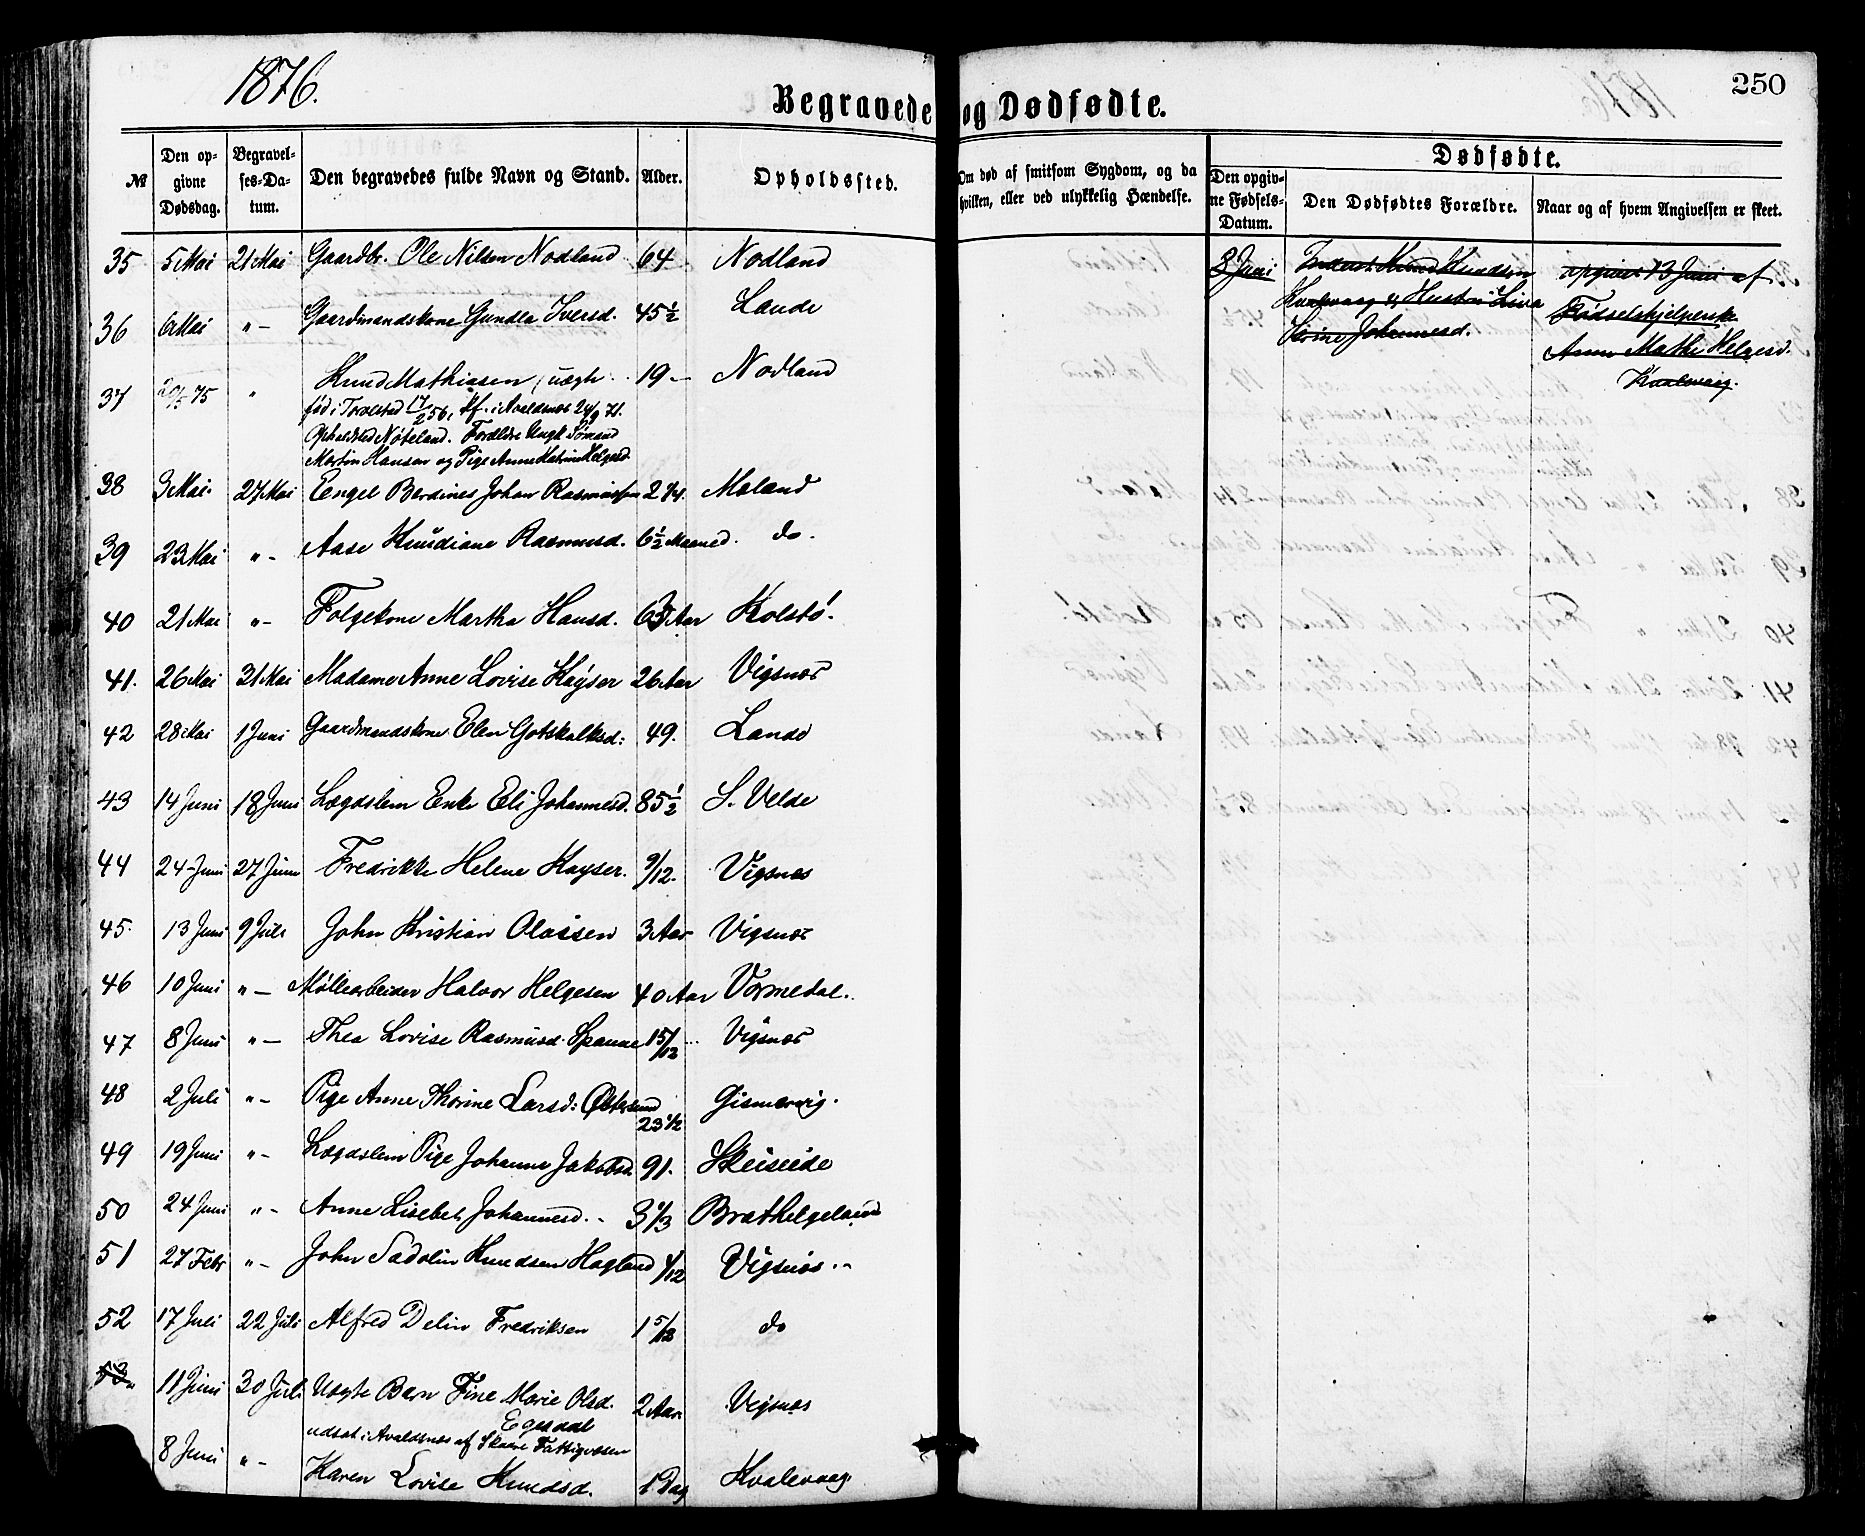 1876.
Begravede og Dødfødte.
250
№
Den opgivne Dødsdag.
Begravelses-Datum.
Den begravedes fulde Navn og Stand.
Alder.
Opholdssted.
Om død af smitsom Sygdom, og da hvilken, eller ved ulykkelig Hændelse.
Dødfødte.
Den opgivne Fødsels-Datum.
Den Dødfødtes Forældre.
Naar og af hvem Angivelsen er skeet.
35 5 Mai 21 Mai Gaardbr. Ole Nilsen Nodland 64 Nodland
36 6 Mai "- Gaardmandskone Gundla Iversd. 45½ Lande
37 75 " Knud Mathiasen, uægt. 19 - Nodland
fød i Torvestad 17/2 56, kf. i Avaldsnæs 24/9 71.
Opholdsted Nøteland. Forældre Ungk. Sømand
Martin Hansen og Pige Anne Katrine Helgesd.
38 3 Mai. 27 Mai Engel Berdines Johan Rasmussen 2 Moland
39 23 Mai "- Aase Knudiane Rasmusd. 6½ Maaned. do.
40 21 Mai "- Folgekone Martha Hansd. Aar Kolstø!
41. 26 Mai 31 Mai Madame Anne Lovise Kayser 26 Aar Vigsnæs
42 28 Mai 1 Juni Gaardmandskone Elen Gotskalksd: 49. Lande
43 14 Juni 18 Juni Lægdslem Enke Eli Johannesd. 85½ S. Velde
44 24 Juni 27 Juni Fredrikke Helene Kayser. 9/12. Vigsnæs
45. 13 Juni 9 Juli John Kristian Olaisen 3 Aar Vigsnæs
46 10 Juni "- Møllearbeider Halvor Helgesen 40 Aar Vormedal.
47 8 Juni "- Thea Lovise Rasmusd. Spanne 15/12 Vigsnæs
48 2 Juli "- Pige Anne Thorine Larsd: Østersund 23½ Gismervig.
49 19 Juni "- Lægdslem Pige Johanne Jakobsd. 91. Skeiseide
50 24 Juni "- Anne Lisebet Johannesd. 3 1/3 Brathelgeland
51 27 Febr "- John Sadolin Knudsen Hagland 1/12 Vigsnæs
52 17 Juli 22 Juli Alfred Delin Fredriksen 1 5/12 do
53. 11 Juni 30 Juli Uægte Barn Fine Marie Olsd. 2 Aar. Vigsnæs
Egesdal
udsat i Avaldsnæs af Skaare Fattigvæsen
8 Juni "- Karen Lovise Knudsd. 1 Dag Kvalevaag
8 Juni
Inderst Knud Knudsen
Kvalevaag og Hustru
Serine Johannesd.
opgivet 13 Juni af
Fødselshjelperske
Anne Mathe Helgesd.
Kvalevaag.